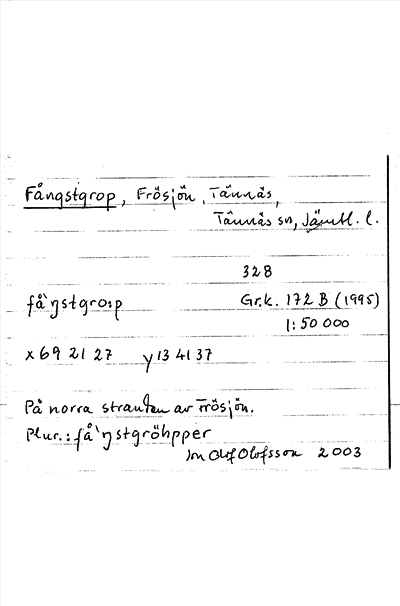 Fångstgrop, Frösjön, Tännäs,
Tännäs sn, Jämtl. l.
328
få`ŋstgro:p
Gr.k. 172 B (1995)
1:50 000
x 69 21 27 y 13 41 37
På norra stranden av Frösjön.
Plur.: få`ŋstgröhpper
Jon Olof Olofsson 2003